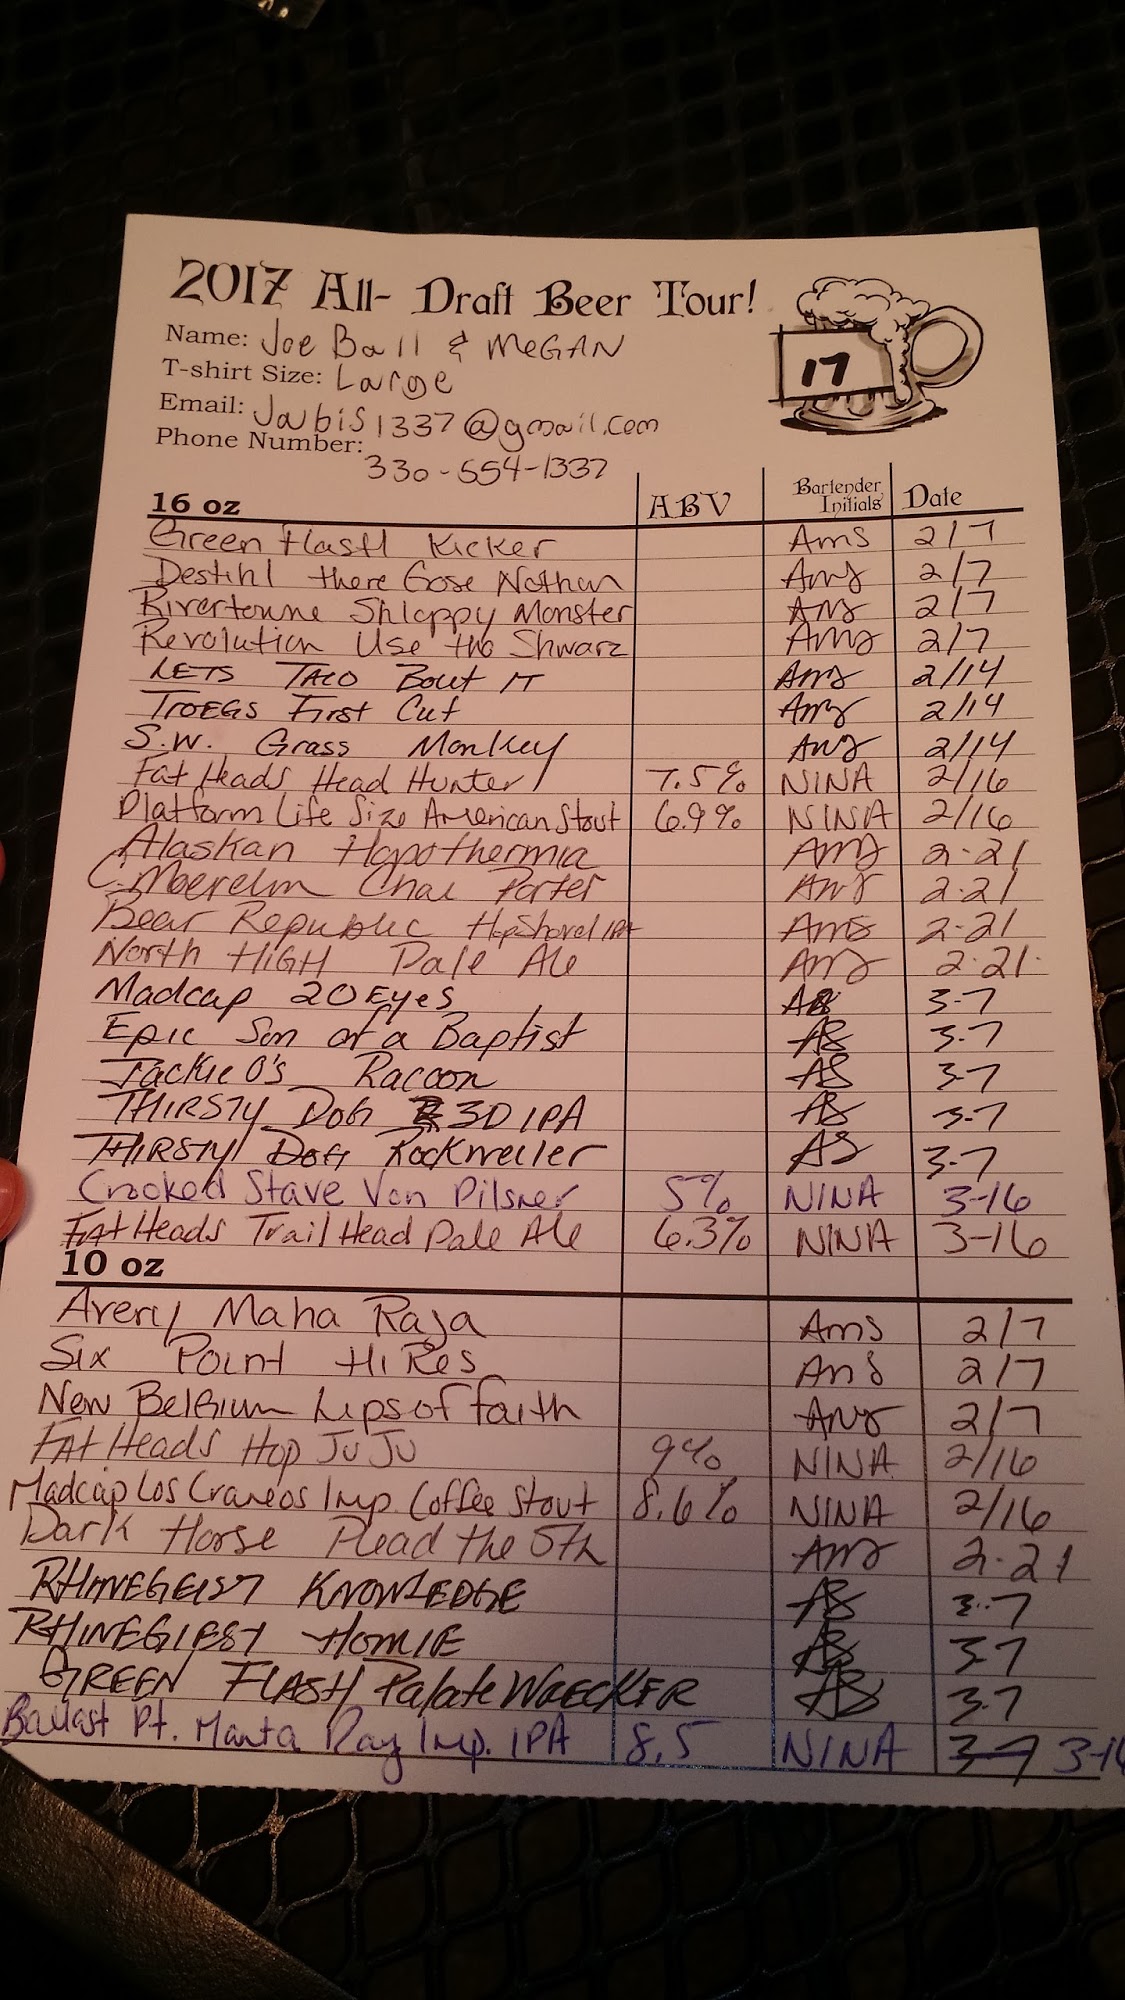 2017 All- Draft Beer Tour!
Name: Joe Ball & MEGAN
17
T-shirt Size: Large
Email: Joubis1337@gmail.com
Phone Number:
330-554-1337
16 oz ABV Bartender Initials Date
Green Flash Kicker Ams 2/7
Destihl there Gose Nathan Ams 2/7
Rivertowne Shlappy Monster Ams 2/7
Revolution Use the Shwarz Ams 2/7
LETS TACO Bout IT Ams 2/14
TROEGS First Cut Ams 2/14
S.W. Grass Monkey Ams 2/14
Fat Heads Head Hunter 7.5% NINA 2/16
Platform Life Size American Stout 6.9% NINA 2/16
Alaskan Hopothermia Ams 2-21
Chai Porter Ams 2-21
Bear Republic HopShovel IPA Ams 2-21
North HIGH Pale Ale Ams 2-21
Madcap 20 Eyes AS 3-7
Epic Son of a Baptist AS 3-7
Jackie O's Racoon AS 3-7
THIRSTY DOG 3D IPA AS 3-7
THIRSTY DOG Rockweiler AS 3-7
Crooked Stave Von Pilsner 5% NINA 3-16
FAt Heads Trail Head Pale Ale 6.3% NINA 3-16
10 oz
Avery Maha Raja Ams 2/7
Six Point Hi Res Ams 2/7
New Belgium Lips of faith Ams 2/7
FAt Heads Hop JuJu 9% NINA 2/16
Madcap Los Craneos Imp. Coffee Stout 8.6% NINA 2/16
Dark Horse Plead the 5th Ams 2-21
RHINEGEIST KNOWLEDGE AS 3-7
RHINEGIEST HOMIE AS 3-7
GREEN FLASH Palate WRECKER AS 3-7
Ballast Pt. Manta Ray Imp. IPA 8.5 NINA 3-7 3-16